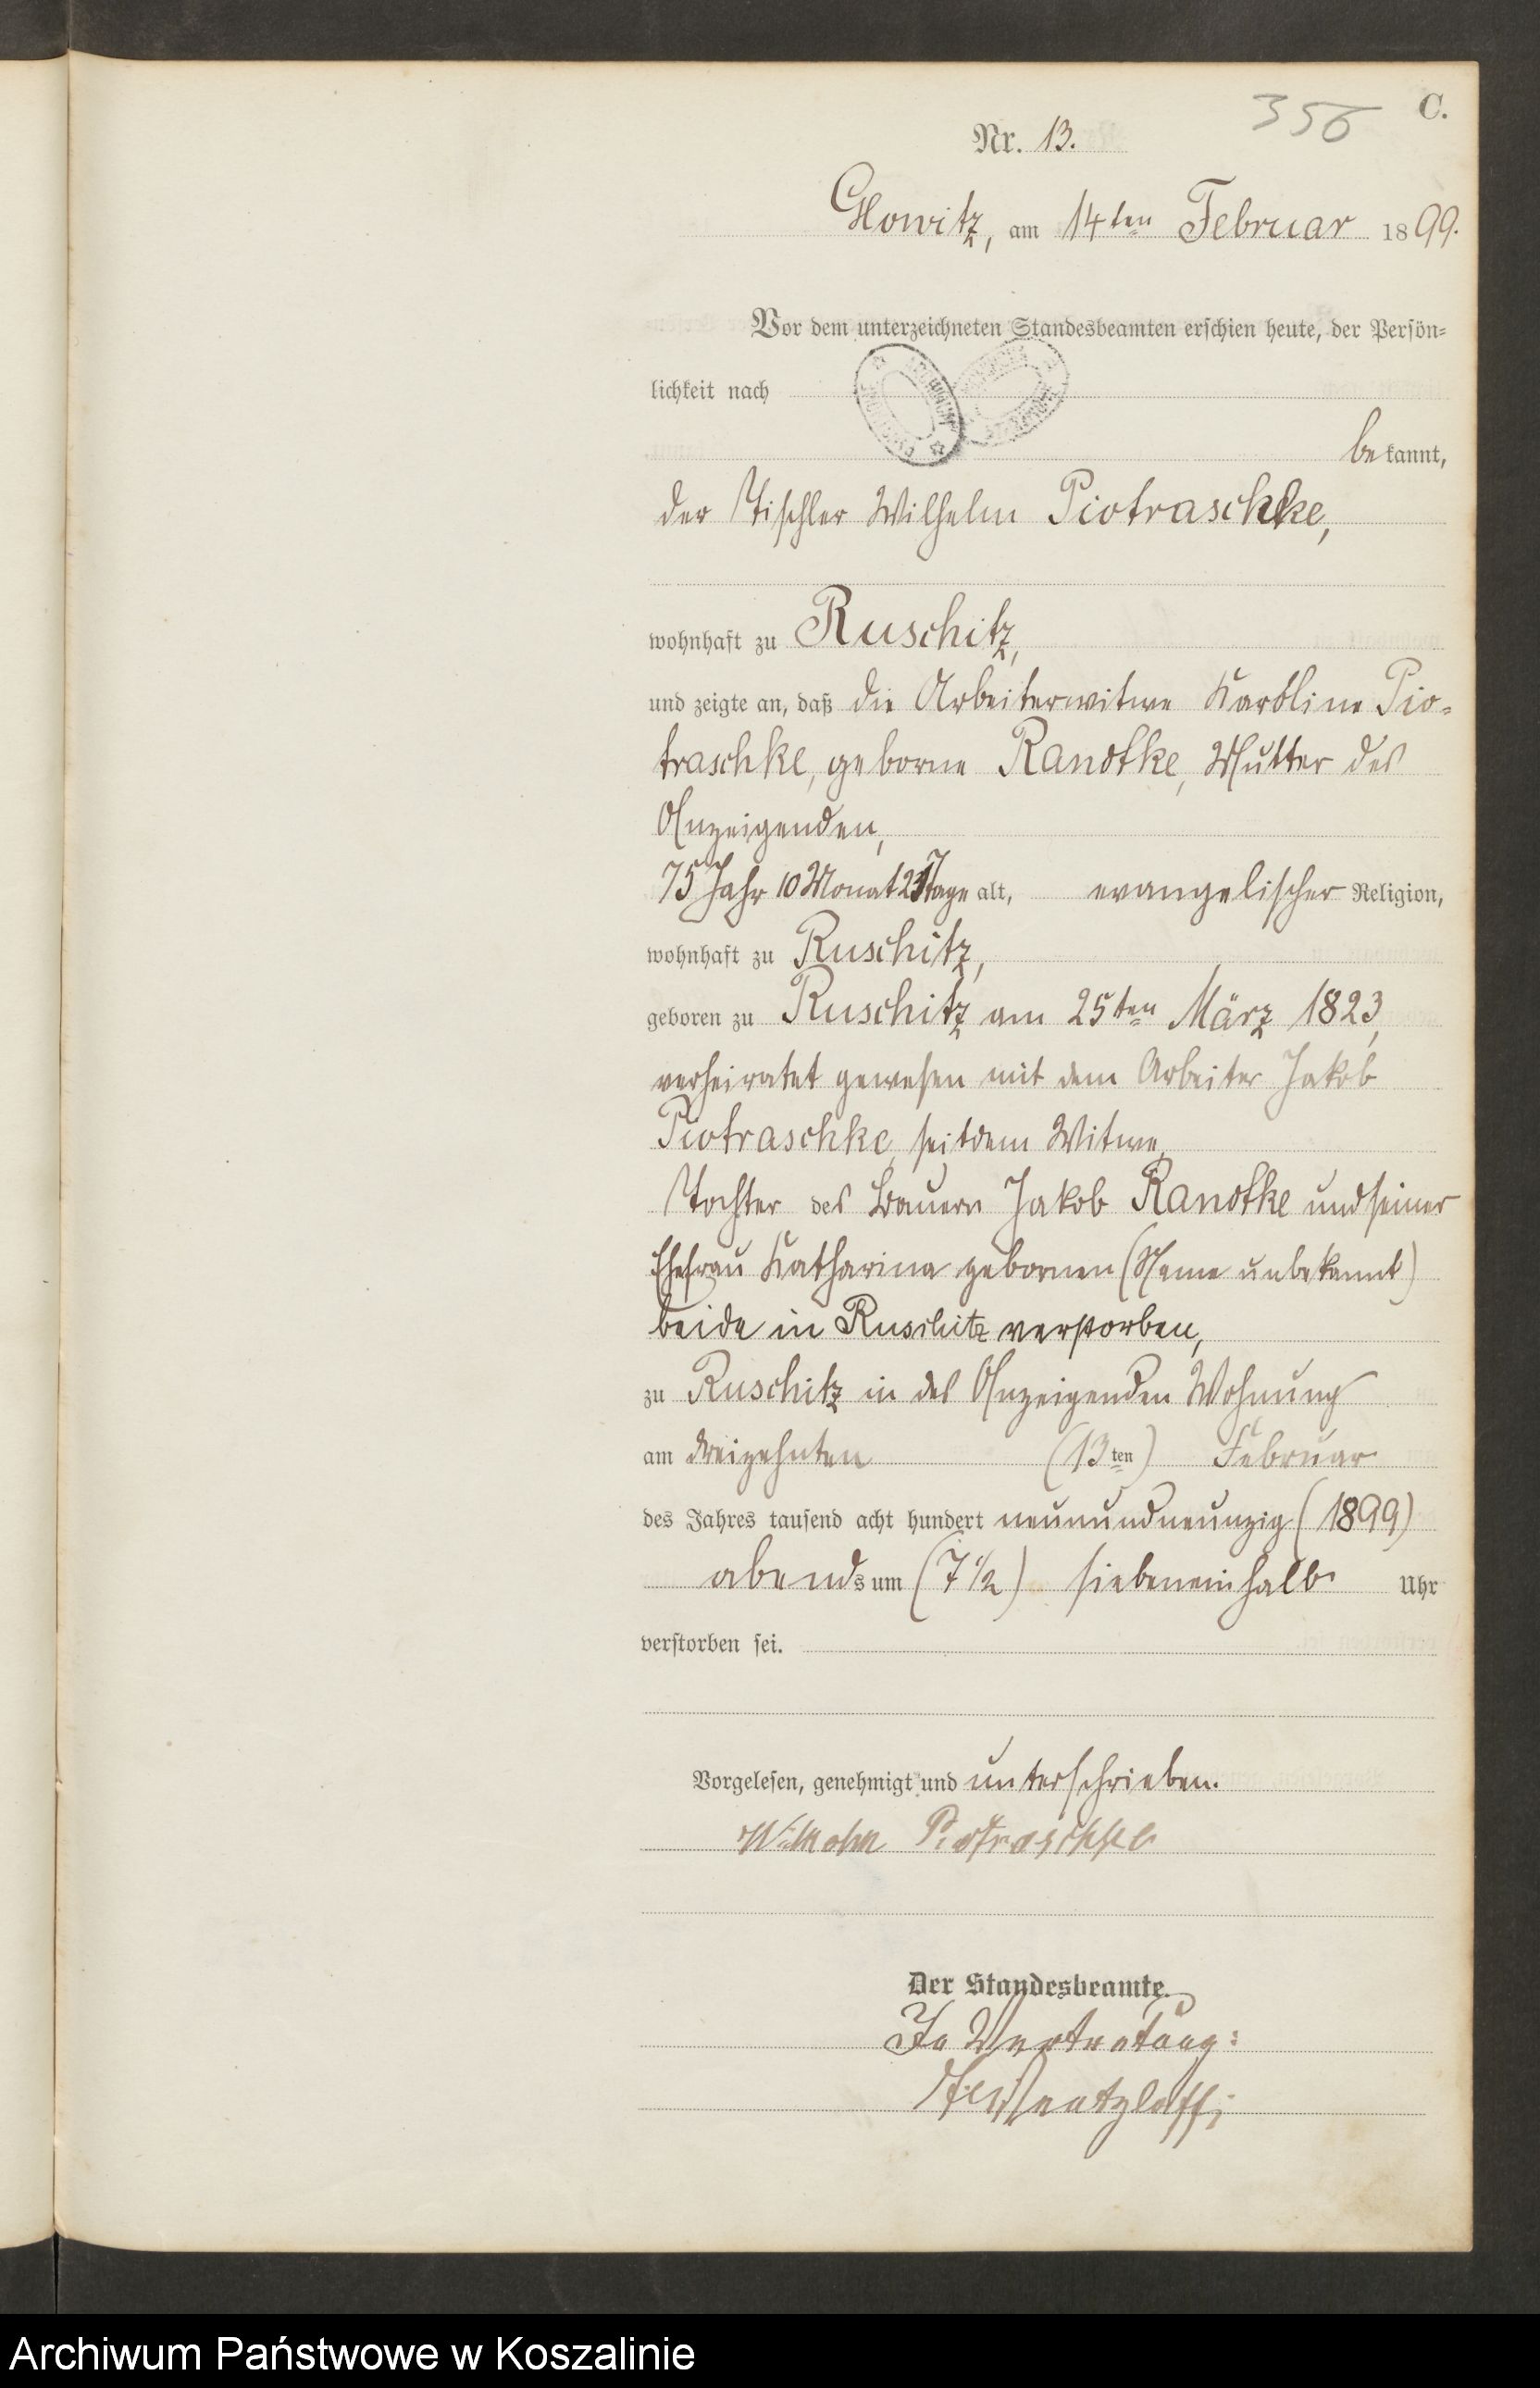 356
C.
Nr. 13.
Glowitz, am 14ten Februar 1899.
Vor dem unterzeichneten Standesbeamten erschien heute, der Persön-
lichkeit nach
bekannt,
der Tischler Wilhelm Piotraschke,
wohnhaft zu Ruschitz,
und zeigte an, daß die Arbeiterwitwe Karoline Pio-
traschke, geborne Ranotke, Mutter des
Anzeigenden,
75 Jahr 10 Monat Tage alt, evangelischer Religion,
wohnhaft zu Ruschitz,
geboren zu Ruschitz am 25ten März 1823,
verheiratet gewesen mit dem Arbeiter Jakob
Piotraschke, seitdem Witwe,
Tochter des Bauern Jakob Ranotke und seiner
Ehefrau Katharina gebornen (Name unbekannt)
beide in Ruschitz verstorben,
zu Ruschitz in des Anzeigenden Wohnung
am dreizehnten (13ten) Februar
des Jahres tausend acht hundert neunundneunzig (1899)
abends um (7 1/2) siebeneinhalb Uhr
verstorben sei.
Vorgelesen, genehmigt und unterschrieben.
Wilhelm Piotraschke
Der Standesbeamte.
In Vertretung:
Archiwum Państwowe w Koszalinie